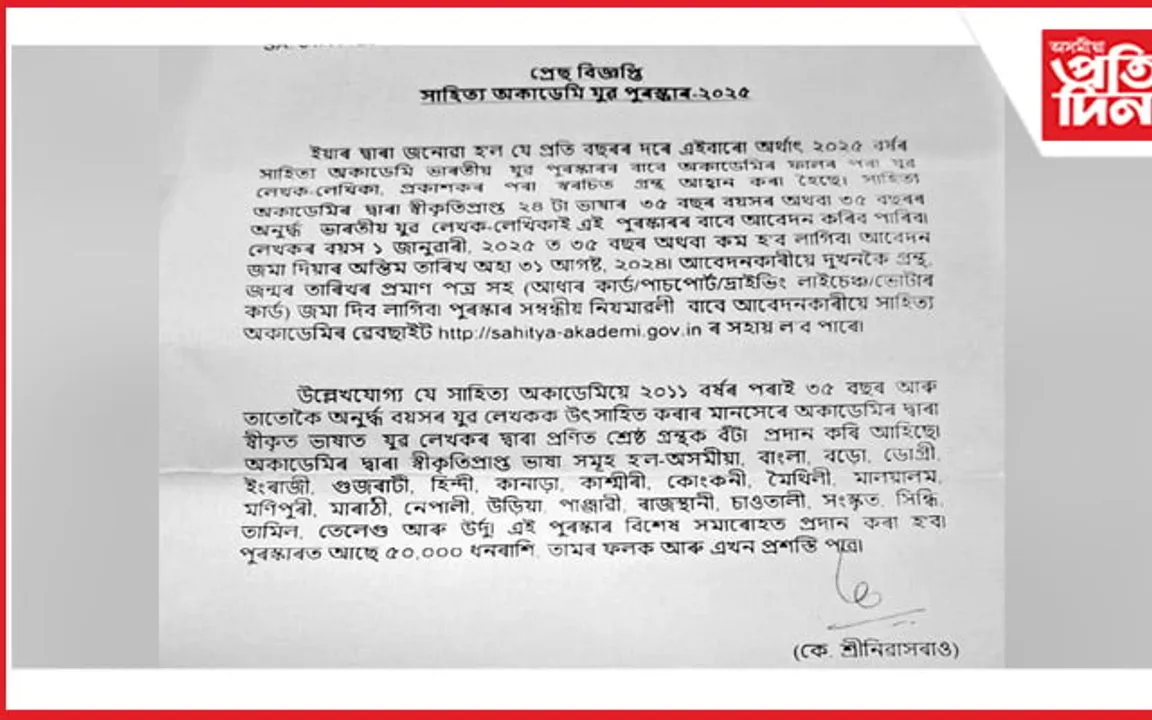 অসমীয়া
প্ৰতি
দিন
প্ৰেছ বিজ্ঞপ্তি
সাহিত্য অকাডেমি যুৱ পুৰস্কাৰ-২০২৫
ইয়াৰ দ্বাৰা জনোৱা হ'ল যে প্ৰতি বছৰৰ দৰে এইবাৰো অৰ্থাৎ ২০২৫ বৰ্ষৰ
সাহিত্য অকাডেমি ভাৰতীয় যুৱ পুৰস্কাৰৰ বাবে অকাডেমিৰ ফালৰ পৰা যুৱ
লেখক-লেখিকা, প্ৰকাশকৰ পৰা স্বৰচিত গ্ৰন্থ আহ্বান কৰা হৈছে। সাহিত্য
অকাডেমিৰ দ্বাৰা স্বীকৃতিপ্ৰাপ্ত ২৪ টা ভাষাৰ ৩৫ বছৰ বয়সৰ অথবা ৩৫ বছৰৰ
অনুৰ্দ্ধ ভাৰতীয় যুৱ লেখক-লেখিকাই এই পুৰস্কাৰৰ বাবে আবেদন কৰিব পাৰিব।
লেখকৰ বয়স ১ জানুৱাৰী, ২০২৫ ত ৩৫ বছৰ অথবা কম হ'ব লাগিব। আবেদন
জমা দিয়াৰ অন্তিম তাৰিখ অহা ৩১ আগষ্ট, ২০২৪। আবেদনকাৰীয়ে দুখনকৈ গ্ৰন্থ,
জন্মৰ তাৰিখৰ প্ৰমাণ পত্ৰ সহ (আধাৰ কাৰ্ড/পাচপোৰ্ট/ড্ৰাইভিং লাইচেঞ্চ/ভোটাৰ
কাৰ্ড) জমা দিব লাগিব। পুৰস্কাৰ সম্বন্ধীয় নিয়মাৱলী বাবে আবেদনকাৰীয়ে সাহিত্য
অকাডেমিৰ ৱেবছাইট http://sahitya-akademi.gov.in ৰ সহায় ল'ব পাৰে।
উল্লেখযোগ্য যে সাহিত্য অকাডেমিয়ে ২০১১ বৰ্ষৰ পৰাই ৩৫ বছৰ আৰু
তাতোকৈ অনুৰ্দ্ধ বয়সৰ যুৱ লেখকক উৎসাহিত কৰাৰ মানসেৰে অকাডেমিৰ দ্বাৰা
স্বীকৃত ভাষাত যুৱ লেখকৰ দ্বাৰা প্ৰণিত শ্ৰেষ্ঠ গ্ৰন্থক বঁটা প্ৰদান কৰি আহিছে।
অকাডেমিৰ দ্বাৰা স্বীকৃতিপ্ৰাপ্ত ভাষা সমূহ হ'ল-অসমীয়া, বাংলা, বড়ো, ডোগ্ৰী,
ইংৰাজী, গুজৰাটী, হিন্দী, কানাড়া, কাশ্মীৰী, কোংকনী, মৈথিলী, মালয়ালম,
মণিপুৰী, মাৰাঠী, নেপালী, উড়িয়া, পাঞ্জাৱী, ৰাজস্থানী, চাওতালী, সংস্কৃত, সিন্ধি,
তামিল, তেলেগু আৰু উৰ্দু। এই পুৰস্কাৰ বিশেষ সমাৰোহত প্ৰদান কৰা হ'ব।
পুৰস্কাৰত আছে ৫০,০০০ ধনৰাশি, তামৰ ফলক আৰু এখন প্ৰশস্তি পত্ৰ।
(কে. শ্ৰীনিৱাসৰাও)